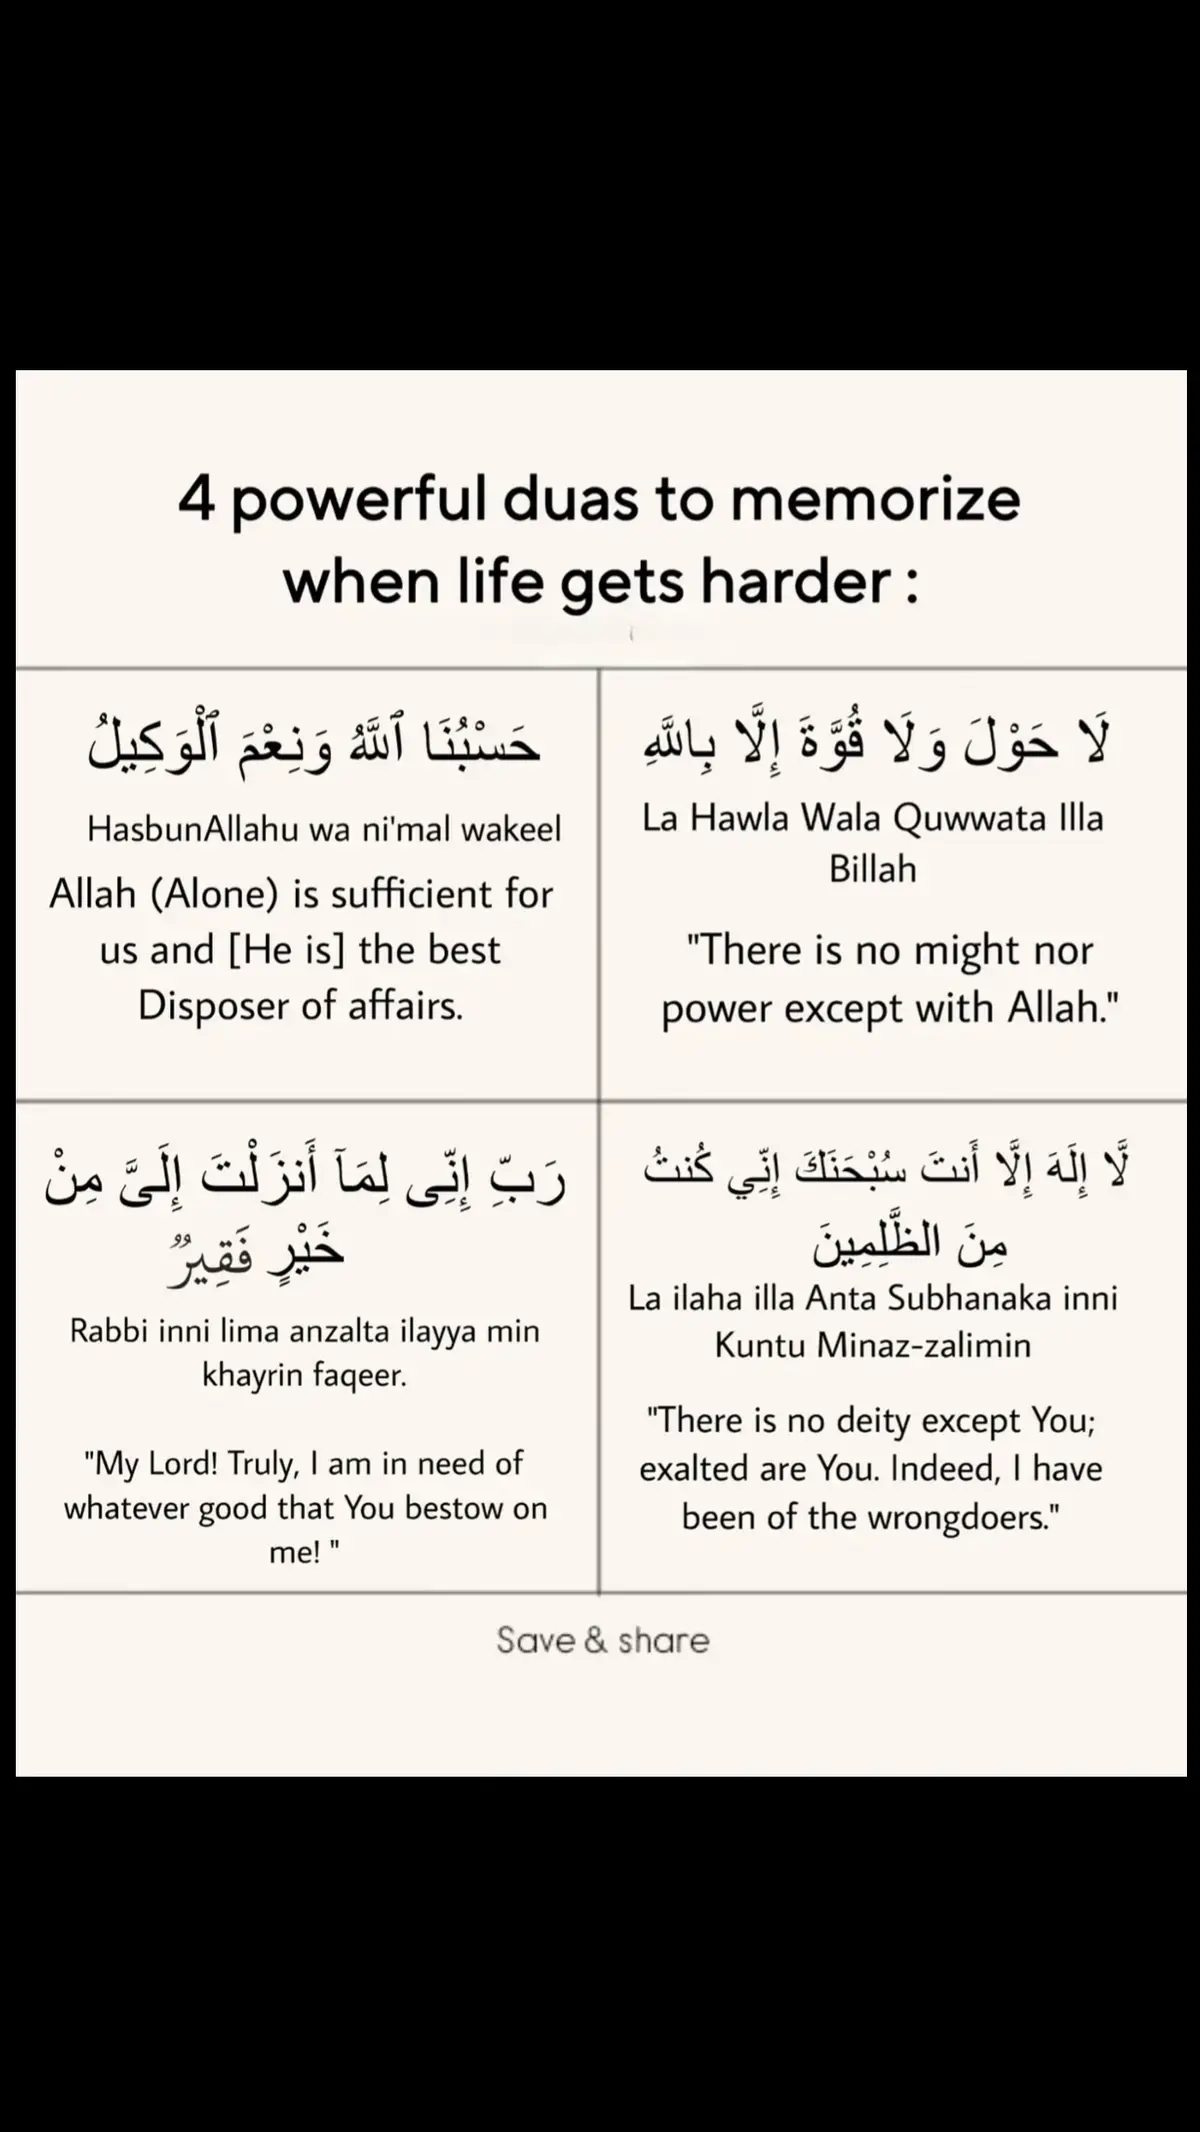 4 powerful duas to memorize
when life gets harder :
حَسْبُنَا ٱللَّهُ وَنِعْمَ ٱلْوَكِيلُ
HasbunAllahu wa ni'mal wakeel
Allah (Alone) is sufficient for
us and [He is] the best
Disposer of affairs.
لَا حَوْلَ وَلَا قُوَّةَ إِلَّا بِاللَّهِ
La Hawla Wala Quwwata Illa
Billah
"There is no might nor
power except with Allah."
رَبِّ إِنِّى لِمَآ أَنزَلْتَ إِلَىَّ مِنْ
خَيْرٍ فَقِيرٌ
Rabbi inni lima anzalta ilayya min
khayrin faqeer.
"My Lord! Truly, I am in need of
whatever good that You bestow on
me! "
لَّا إِلَهَ إِلَّا أَنتَ سُبْحَنَكَ إِنِّي كُنتُ
مِنَ الظَّلِمِينَ
La ilaha illa Anta Subhanaka inni
Kuntu Minaz-zalimin
"There is no deity except You;
exalted are You. Indeed, I have
been of the wrongdoers."
Save & share